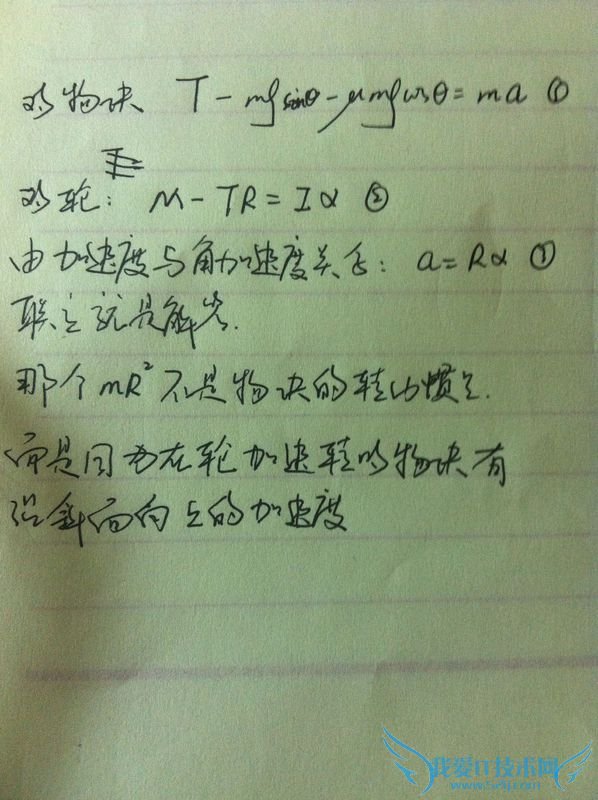 对物块 T - mg sinθ - μmg cosθ = ma ①
对轮: M - TR = Iα ②
由加速度与角加速度关系: a = Rα ①
联立就是解答.
那个 mR² 不是物块的转动惯量.
而是因为在轮加速转时物块有
沿斜面向上的加速度
我爱IT技术网